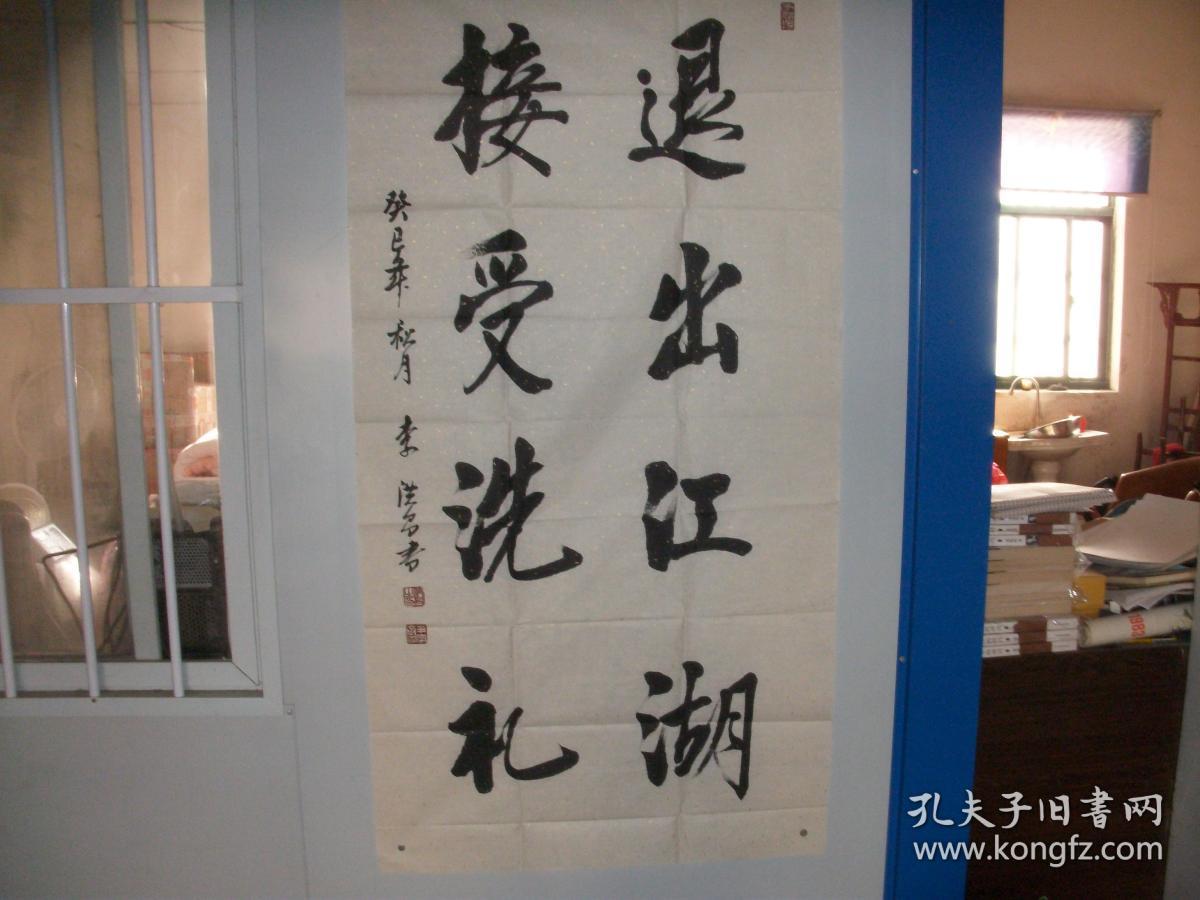 退出江湖
接受洗礼
癸巳年 秋月 李洪昌书
孔夫子旧書网
www.kongfz.com
1983